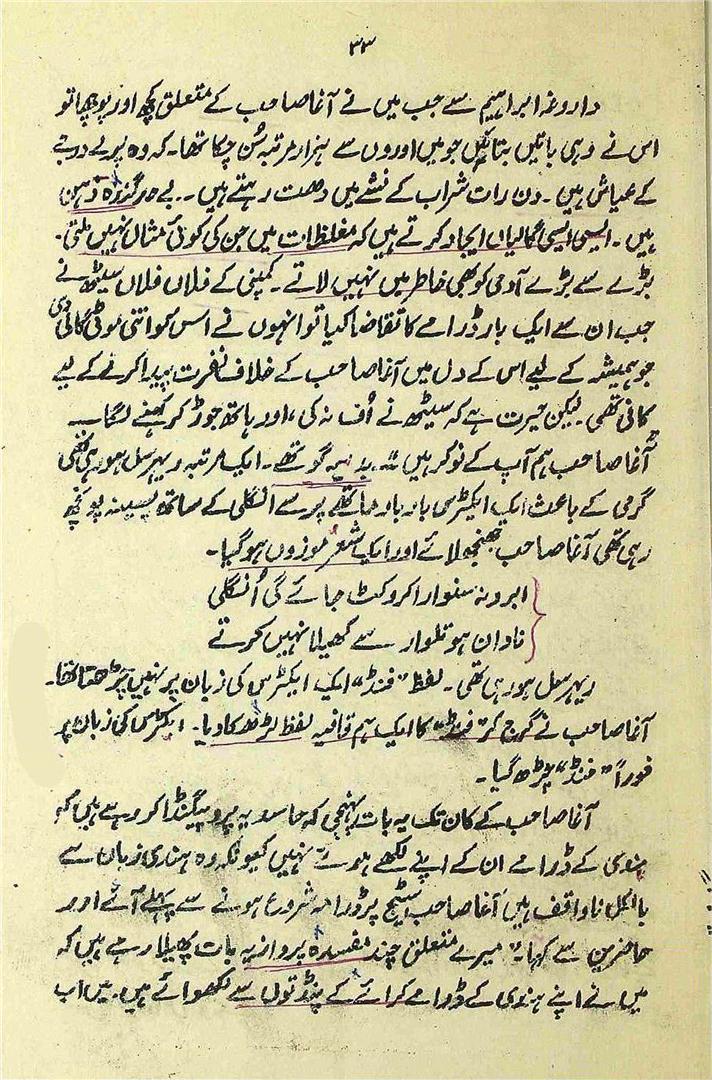 ۳۳
داروغہ ابراہیم سے جب میں نے آغا صاحب کے متعلق کچھ اور پوچھا تو
اس نے وہی باتیں بتائیں جو میں اوروں سے ہزار مرتبہ سُن چکا تھا۔ کہ وہ پرلے درجے
کے عیاش ہیں۔ دن رات شراب کے نشے میں دھت رہتے ہیں۔ بے حد گندہ ذہن
ہیں۔ ایسی ایسی گالیاں ایجاد کرتے ہیں کہ مغلظات میں جن کی کوئی مثال نہیں ملتی۔
بڑے سے بڑے آدمی کو بھی خاطر میں نہیں لاتے۔ کمپنی کے فلاں فلاں سیٹھ نے
جب ان سے ایک بار ڈرامے کا تقاضا کیا تو انہوں نے اس کو اتنی موٹی گالی دی
جو ہمیشہ کے لیے اس کے دل میں آغا صاحب کے خلاف نفرت پیدا کرنے کے لیے
کافی تھی۔ لیکن حیرت ہے کہ سیٹھ نے اُف نہ کی، اور ہاتھ جوڑ کر کہنے لگا۔
"آغا صاحب ہم آپ کے نوکر ہیں"۔ بدیہہ گو تھے۔ ایک مرتبہ ریہرسل ہو رہی تھی
گرمی کے باعث ایک ایکٹرس بار بار ماتھے پر سے انگلی کے ساتھ پسینہ پونچھ
رہی تھی آغا صاحب جھنجھلائے اور ایک شعر موزوں ہو گیا۔
ابرو نہ سنوارا کرو کٹ جائے گی اُنگلی
نادان ہو تلوار سے کھیلا نہیں کرتے
ریہرسل ہو رہی تھی۔ لفظ "فنڈ" ایک ایکٹرس کی زبان پر نہیں چڑھتا تھا۔
آغا صاحب نے گرج کر "فنڈ" کا ایک ہم قافیہ لفظ لڑھکا دیا۔ ایکٹرس کی زبان پر
فوراً "فنڈ" چڑھ گیا۔
آغا صاحب کے کان تک یہ بات پہنچی کہ حاسد یہ پروپیگنڈا کر رہے ہیں کہ
ہندی کے ڈرامے ان کے اپنے لکھے ہوئے نہیں کیونکہ وہ ہندی زبان سے
بالکل ناواقف ہیں آغا صاحب سٹیج پر ڈرامہ شروع ہونے سے پہلے آئے اور
حاضرین سے کہا۔ "میرے متعلق چند مفسدہ پرداز یہ بات پھیلا رہے ہیں کہ
میں نے اپنے ہندی کے ڈرامے کرائے کے پنڈتوں سے لکھوائے ہیں۔ میں اب